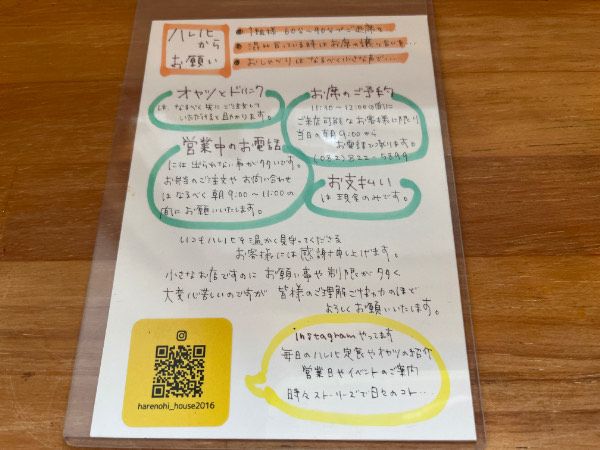 ハレヒ
から
お願い
● 1組様 60分〜90分でご退席を…
● 混み合っている時はお席の譲り合い…
● おしゃべりはなるべく小さな声で…
オヤツとドリンク
は なるべく先にご注文して
いただけると助かります。
お席のご予約
11:30〜12:00の間に
ご来店可能なお客様に限り
当日の朝 9:00から
お電話で承ります。
(0823)822-5899
営業中のお電話
には出られない事が多いです。
お弁当のご注文や お問い合わせ
は なるべく 朝 9:00〜11:00の
間にお願いいたします。
お支払い
は現金のみです。
いつもハレヒを温かく見守ってくださる
お客様には感謝申し上げます。
小さなお店ですのに お願い事や制限が多く
大変心苦しいのですが 皆様のご理解ご協力のほど
よろしくお願いいたします。
instagramやってます
毎日のハレヒ定食やオヤツの紹介
営業日やイベントのご案内
時々ストーリーズで日々のコト…
harenohi_house2016